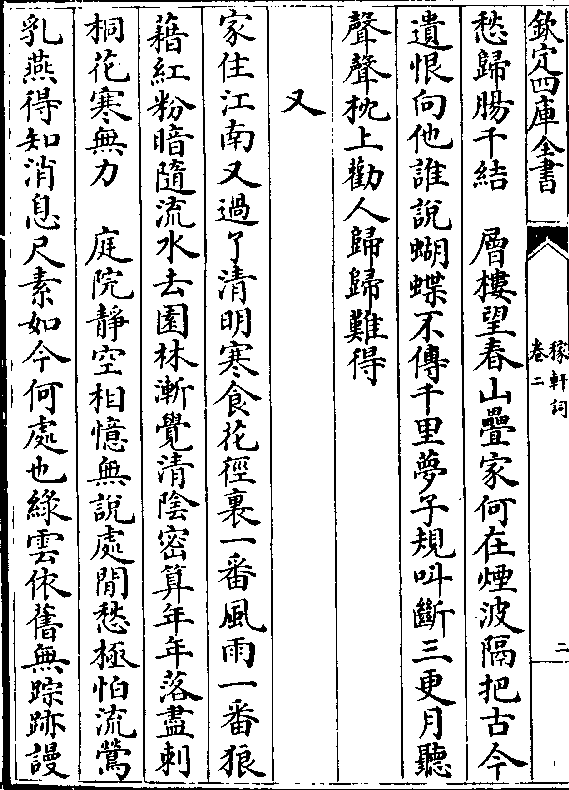 欽定四庫全書
稼軒詞
卷二
二
愁歸腸千結　層樓望春山疊家何在煙波隔把古今
遺恨向他誰說蝴蝶不傳千里夢子規叫斷三更月聽
聲聲枕上勸人歸歸難得
又
家住江南又過了清明寒食花徑裏一番風雨一番狼
藉紅粉暗隨流水去園林漸覺清陰密算年年落盡刺
桐花寒無力　庭院靜空相憶無說處閒愁極怕流鶯
乳燕得知消息尺素如今何處也綠雲依舊無踪跡謾